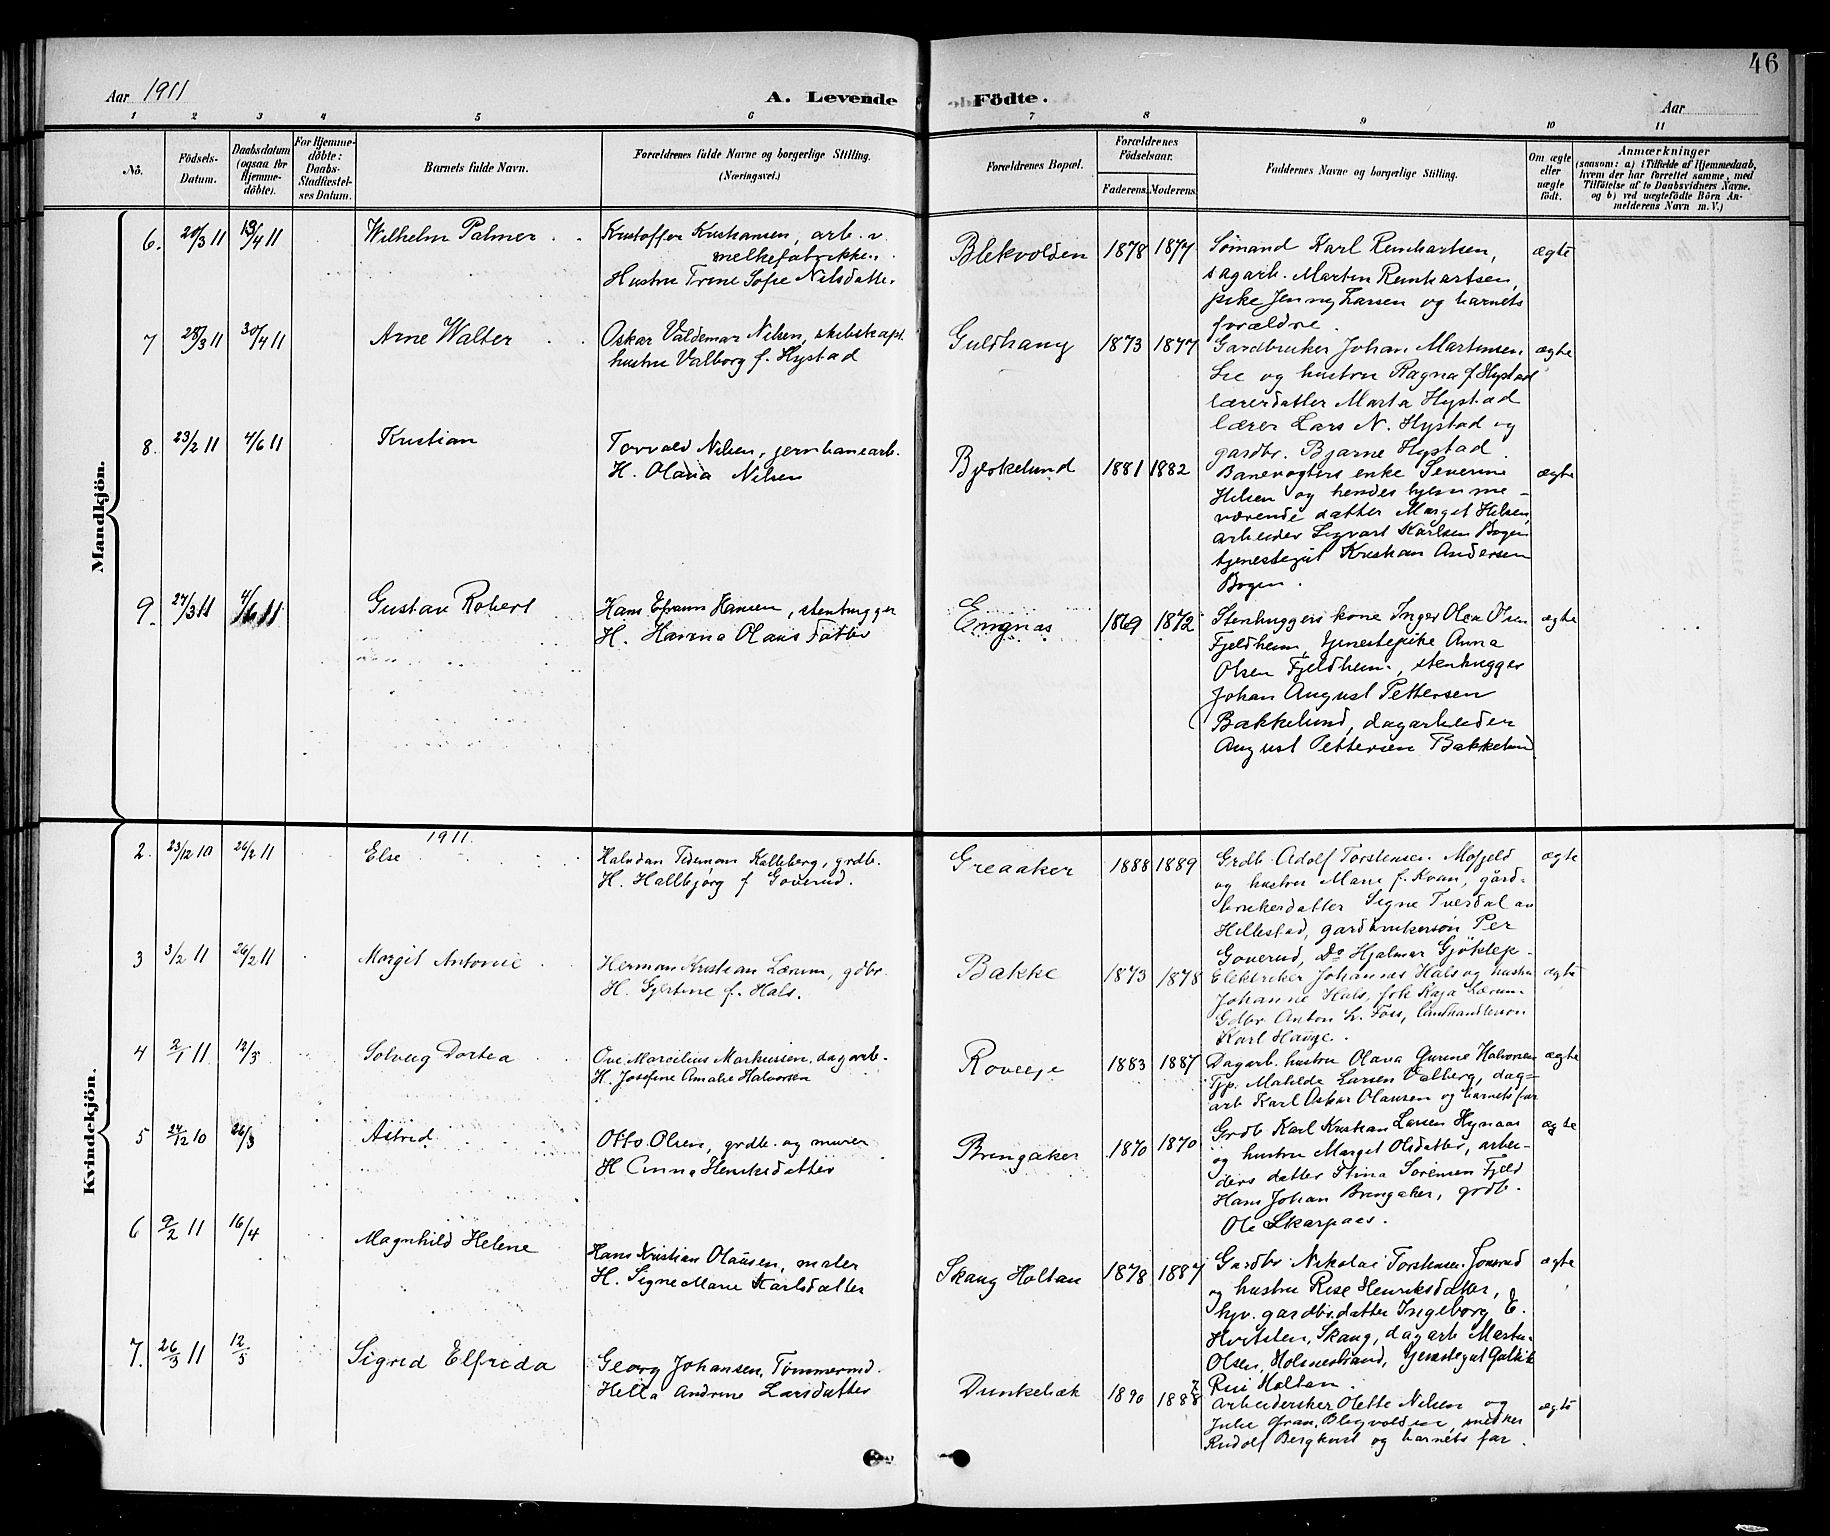 46
Aar 1911
A. Levende Födte.
Aar
1 2 3 4 5 6 7 8 9 10 11
No.
Födsels-Datum.
Daabsdatum (ogsaa for Hjemmedöbte).
For Hjemmedöbte: Daabs-Stadfæstelses Datum.
Barnets fulde Navn.
Forældrenes fulde Navne og borgerlige Stilling. (Næringsvei.)
Forældrenes Bopæl.
Forældrenes Födselsaar.
Faderens. Moderens.
Faddernes Navne og borgerlige Stilling.
Om ægte eller uægte födt.
Anmærkninger
(saasom: a) i Tilfælde af Hjemmedaab, hvem der har forrettet samme, med Tilföielse af to Daabsvidners Navne. og b) ved uægtefödte Börn Anmelderens Navn m. V.)
Mandkjön.
6. 20/3 11 /4 11 Wilhelm Palmer
Kristoffer Kristiansen, arb. v
melkefabrikken.
Hustru Trine Sofie Nilsdatter.
Blekvolden 1878 1877
Sømand Karl Reinhartsen,
sagarb. Martin Reinhartsen,
pike Jenny Larsen og barnets
forældre.
ægte
7 28/3 11 30/4 11 Arne Walter
Oskar Valdemar Nilsen, skibskapt.
hustru Valborg f. Hystad
Guldhaug 1873 1877
Gardbruker Johan Martinsen
Lie og hustru Ragna f. Hystad
lærerdatter Marta Hystad
lærer Lars N. Hystad og
gardbr. Bjarne Hystad.
ægte
8. 23/2 11 4/6 11 Kristian
Torvald Nilsen, jernbanearb.
H. Olava Nilsen
Bjerkelund 1881 1882
Banevogters enke Severine
Helsen og hendes hjemme-
værende datter Marget Helsen,
arbeider Sigvart Karlsen Bogen
tjenestegut Kristian Andersen
Bogen.
ægte
9. 27/3 11 4/6 11 Gustav Robert
Hans Efraim Hansen, stenhugger
H. Hanna Olaus Datter
Engnes 1869 1872
Stenhuggers kone Inger Olea Olsen
Fjeldheim, tjenestepike Anna
Olsen Fjeldheim, stenhugger
Johan August Pettersen
Bakkelund, dagarbeider
August Pettersen Bakkelund
ægte
Kvindekjön.
1911.
2. 23/12 10 26/2 11 Else
Halvdan Tidemann Kalleberg, grdb.
H. Hallbjørg f Goverud.
Greaaker 1888 1889
Grdb. Adolf Torstensen Mofjeld
og hustru Marie f. Kvan, gård-
brukerdatter Signe Tverdal av
Hillestad, gardbrukersøn Per
Goverud, Do Hjalmar Gjöklep
ægte
3 3/2 11 26/2 11 Margit Antonie
Herman Kristian Lærum, gdbr.
H. Gjertine f. Hals.
Bakke 1873 1878
Elektriker Johannes Hals og hustru
Johanne Hals, frk Kaja Lærum.
Gdbr. Anton L. Foss, landhandlersøn
Karl Hauge.
ægte
4 2/1 11 12/3 Solveig Dortea
Ove Marcilius Markussen, dagarb.
H. Josefine Amalie Halvorsen
Roveeje 1883 1887
Dagarb. hustru Olava Gurine Halvorsen
Tjp. Matilde Larsen Valberg, dag-
arb Karl Oskar Olausen og barnets far
ægte
5 24/12 10 26/3 Astrid
Otto Olsen, grdb. og murer
H Anna Henriksdatter
Bringaker 1870 1870
Grdb Karl Kristian Larsen Hynaas
og hustru Marget Olsdatter, arbei-
ders datter Stina Sørensen Fjeld
Hans Johan Bringaker, grdb.
Ole Skarpaas.
ægte
6 9/2 11 16/4 Magnhild Helene
Hans Kristian Olausen, maler
H. Signe Marie Karlsdatter
Skaug Holtan 1878 1887
Gardbr Nikolai Torstensen
og hustru Rise Henriksdatter,
hjv. gardbr.datter Ingeborg E.
Hvitsten, Skaug, dagarb Martin
Olsen, Holmestrand, tjenestegut
Holtan.
ægte
7. 26/3 11 12/5 Sigrid Elfrida
Georg Johansen, Tømmermd.
Hella Andrine Larsdatter
Dunkebæk 1890 1888
Arbeidersker Olette Nilsen og
Julie Gran, Blegvolden,
Rudolf Bergkvist og barnets far.
ægte